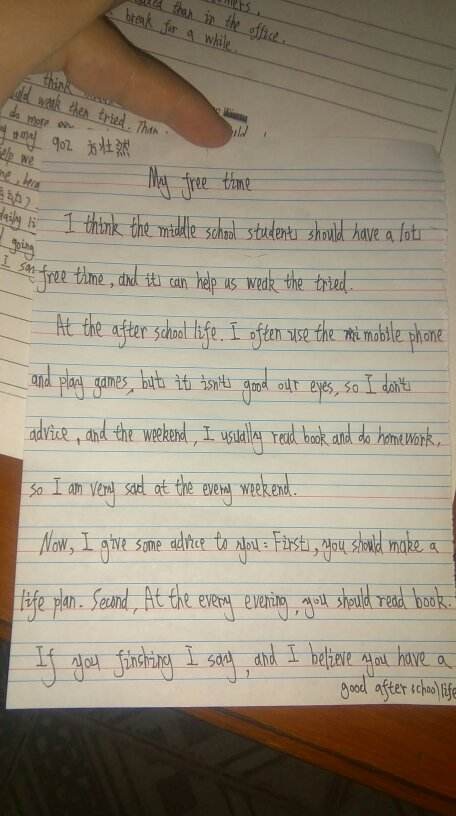 ated than in the office.
break for a while.
think
uld weak then tried. Than
do more
help we
daily li
going
902
My free time
I think the middle school students should have a lot
free time, and it can help us weak the tried.
At the after school life. I often use the mobile phone
and play games, but it isn't good our eyes, so I don't
advice, and the weekend, I usually read book and do homework,
so I am very sad at the every weekend.
Now, I give some advice to you: First, you should make a
life plan. Second, At the every evening, you should read book.
If you finshing I say, and I believe you have a
good after school life